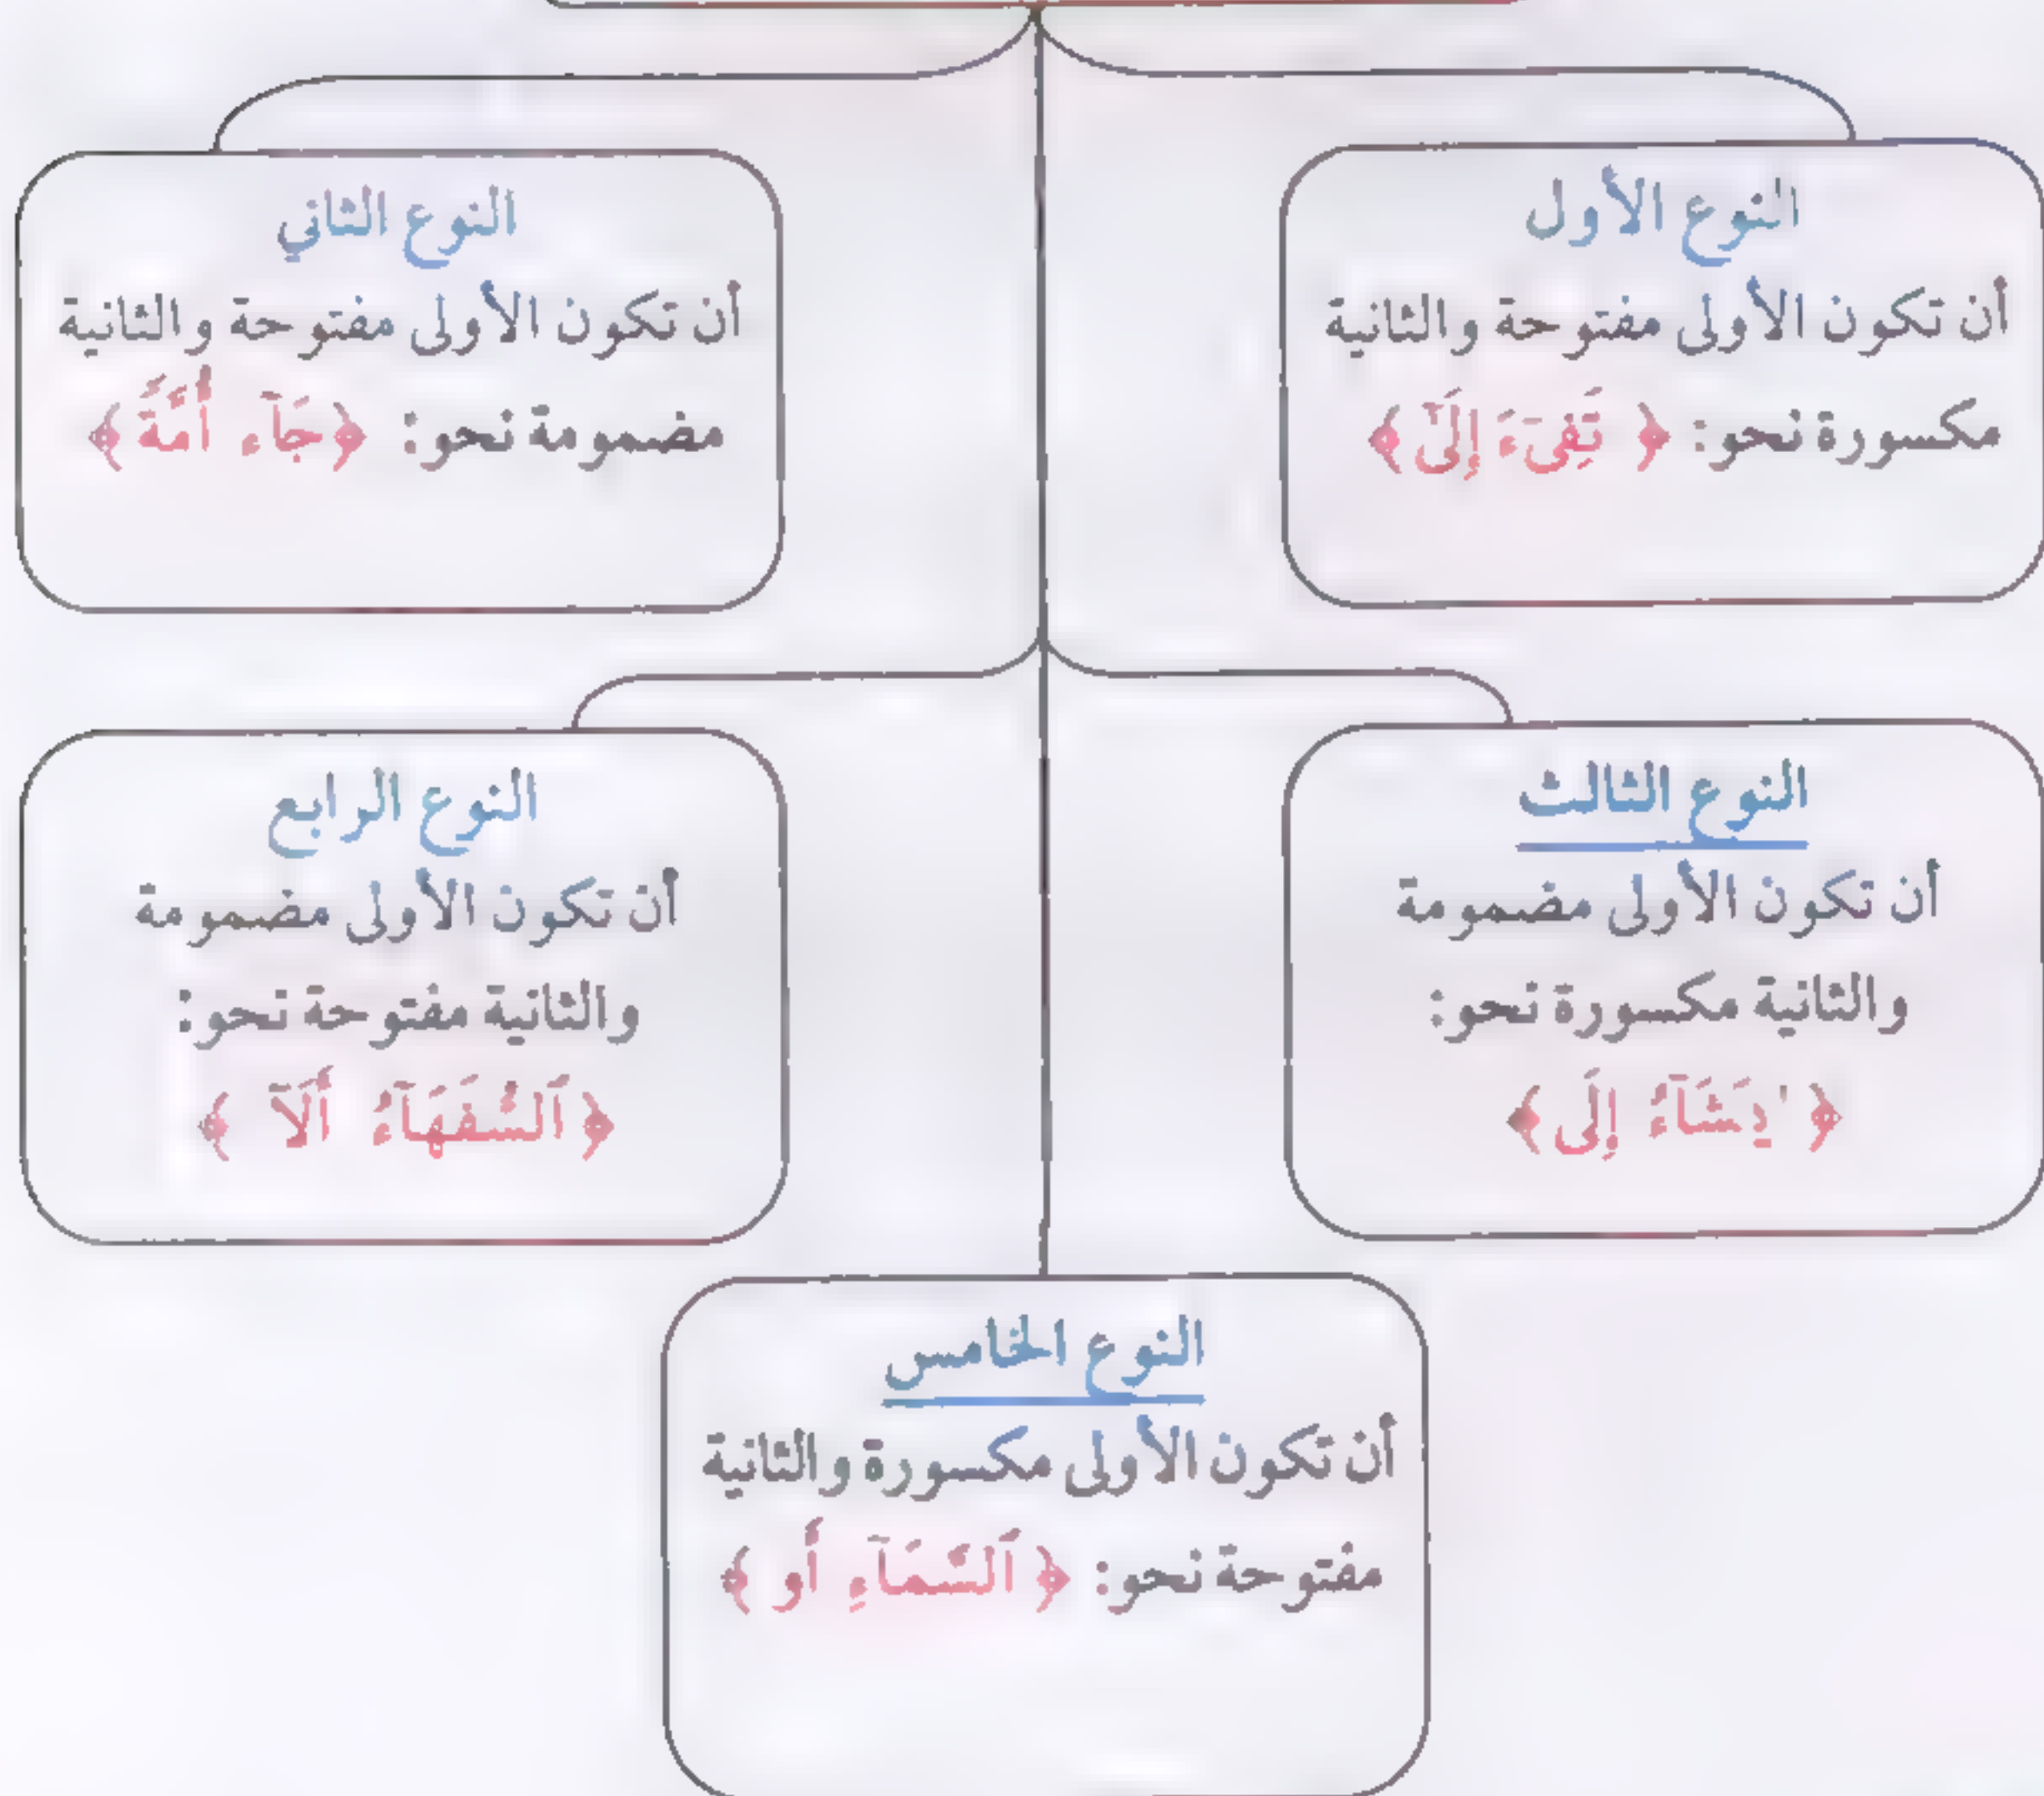 النوع الأول
أن تكون الأولى مفتوحة والثانية
مكسورة نحو: ﴿ تَفِىٓءَ إِلَىٰٓ ﴾
النوع الثاني
أن تكون الأولى مفتوحة والثانية
مضمومة نحو: ﴿جَآء أُمَّةَ﴾
النوع الثالث
أن تكون الأولى مضمومة
والثانية مكسورة نحو:
﴿ يَشَآءُ إِلَى﴾
النوع الرابع
أن تكون الأولى مضمومة
والثانية مفتوحة نحو:
﴿اَلسُّفَهَآءُ أَلَآ ﴾
النوع الخامس
أن تكون الأولى مكسورة والثانية
مفتوحة نحو: ﴿اَلسَّمَآءِ أَو ﴾